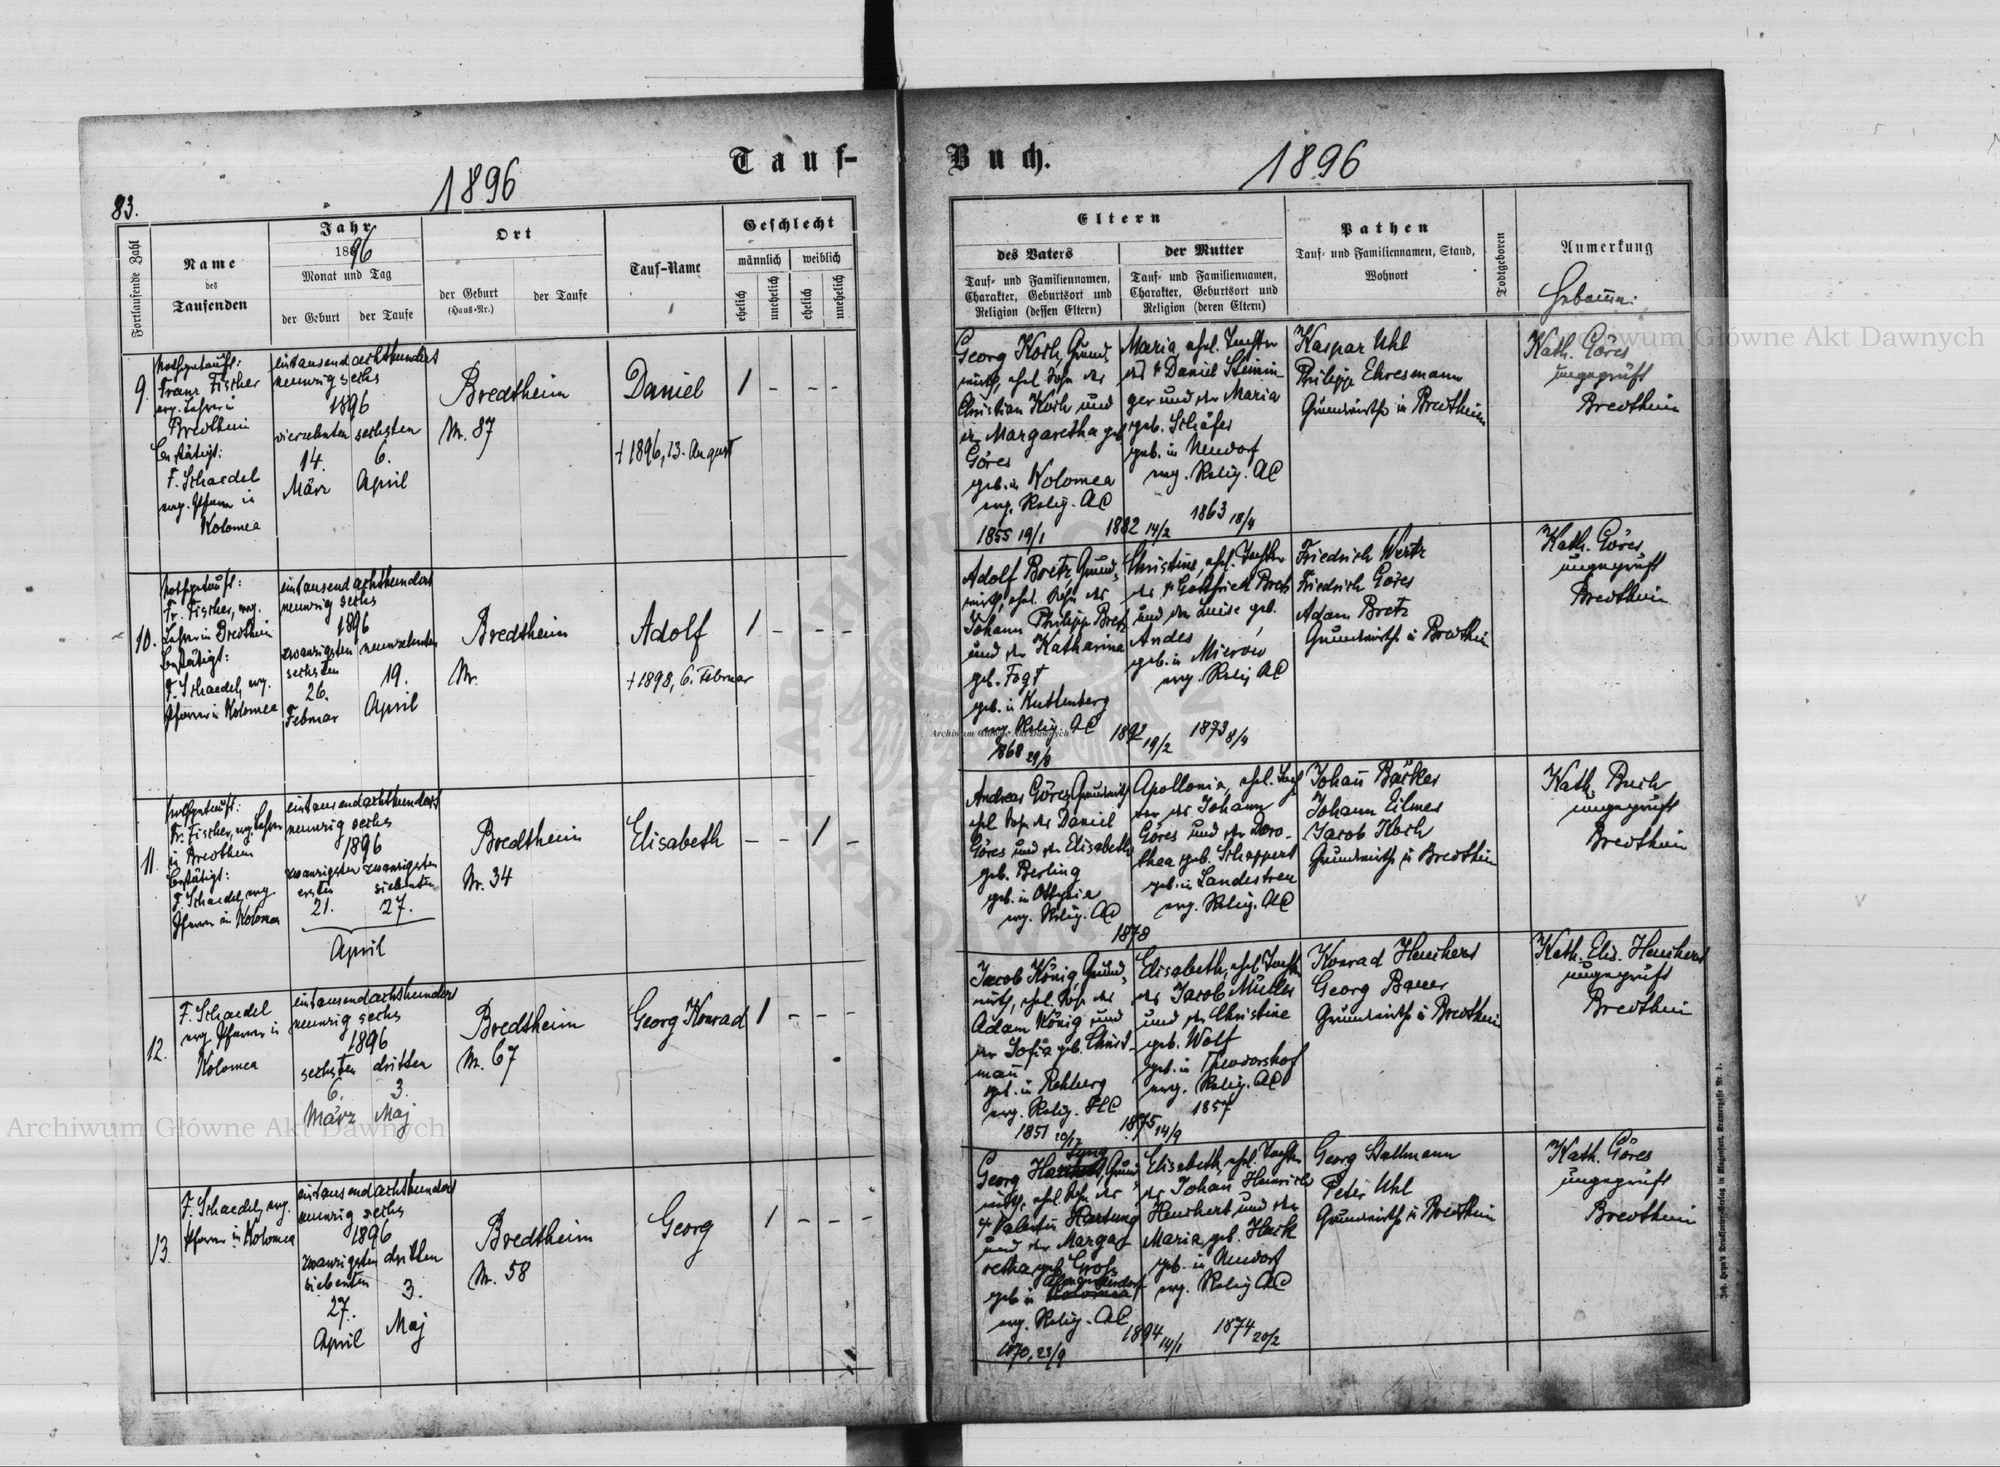 Tauf-
1896
83.
Fortlaufende Zahl
Name
des
Taufenden
Jahr
1896
Monat und Tag
der Geburt
der Taufe
Ort
der Geburt
(Haus-Nr.)
der Taufe
Tauf-Name
Geschlecht
männlich
weiblich
ehelich
unehelich
ehelich
unehelich
9.
Nothgetauft:
Franz Fischer
evg. Lehrer in
Bredtheim
bestätigt:
F. Schaedel
evg. Pfarrer in
Kolomea
eintausend achthundert
neunzig sechs
1896
vierzehnten sechsten
14. 6.
März April
Bredtheim
Nr. 87
Daniel
† 1896, 13. August
1 - - -
10.
Nothgetauft:
Fr. Fischer, evg.
Lehrer in Bredtheim
bestätigt:
F. Schaedel, evg.
Pfarrer in Kolomea
eintausend achthundert
neunzig sechs
1896
zwanzigsten neunzehnten
sechsten
26. 19.
Februar April
Bredtheim
Nr.
Adolf
† 1898, 6. Februar
1 - - -
11.
Nothgetauft:
Fr. Fischer, evg. Lehrer
in Bredtheim
bestätigt:
F. Schaedel, evg
Pfarrer in Kolomea
eintausendachthundert
neunzig sechs
1896
zwanzigsten zwanzigsten
ersten siebenten
21. 27.
April
Bredtheim
Nr. 34
Elisabeth
- - 1 -
12.
F. Schaedel
evg. Pfarrer in
Kolomea
eintausendachthundert
neunzig sechs
1896
sechsten dritten
6. 3.
März Maj
Bredtheim
Nr. 67
Georg Konrad
1 - - -
13.
F. Schaedel, evg.
Pfarrer in Kolomea
eintausendachthundert
neunzig sechs
1896
zwanzigsten dritten
siebenten
27. 3.
April Maj
Bredtheim
Nr. 58
Georg
1 - - -
Buch.
1896
Eltern
des Vaters
Tauf- und Familiennamen,
Charakter, Geburtsort und
Religion (dessen Eltern)
der Mutter
Tauf- und Familiennamen,
Charakter, Geburtsort und
Religion (deren Eltern)
Pathen
Tauf- und Familiennamen, Stand,
Wohnort
Todtgeboren
Anmerkung
Georg Koch, Grund-
wirth, ehel. Sohn des
Christian Koch und
der Margaretha geb
Göres
geb. in Kolomea
evg. Relig. AC
1855 19/1
1882 14/2
Maria, ehel. Tochter
des † Daniel Steinin
ger und der Maria
geb. Schäfer
geb. in Neudorf
evg. Relig. AC
1863 18/4
Kaspar Uhl
Philipp Ehresmann
Grundwirthe in Bredtheim
Kath. Göres
ungeprüft
Bredtheim
Adolf Bretz, Grund-
wirth, ehel. Sohn des
Johann Philipp Bretz
und der Katharina
geb. Fogt
geb. in Kuttenberg
evg. Relig. AC
1868 29/8
1892 19/2
Christine, ehel. Tochter
des † Gottfried Bretz
und der Luise geb.
Andes
geb. in Mierów
evg. Relig AC
1873 8/4
Friedrich Wertz
Friedrich Göres
Adam Bretz
Grundwirthe in Bredtheim
Kath. Göres
ungeprüft
Bredtheim
Andreas Göres, Grundwirth
ehel. Sohn des Daniel
Göres und der Elisabeth
geb. Berling
geb. in Ottynia
evg. Relig. AC
1878
Apollonia, ehel. Toch
ter des Johann
Göres und der Doro-
thea geb. Schappert
geb. in Landestreu
evg. Relig. AC
Johann Bäcker
Johann Eilmes
Jacob Koch
Grundwirthe in Bredtheim
Kath. Buch
ungeprüft
Bredtheim
Jacob König, Grund-
wirth, ehel. Sohn des
Adam König und
der Sofia geb. Christ-
mann
geb. in Rehberg
evg. Relig. HC
1851 20/12
1875 14/9
Elisabeth, ehel. Tochter
des Jacob Müller
und der Christine
geb. Wolf
geb. in Theodorshof
evg. Relig. AC
1857
Konrad Henchert
Georg Bauer
Grundwirthe in Bredtheim
Kath. Elis. Henchert
ungeprüft
Bredtheim
Georg Hartung, Grund
wirth, ehel. Sohn des
† Valentin Hartung
und der Marga-
retha geb. Gross
geb. in
evg. Relig. AC
1870, 23/9
1894 14/1
Elisabeth, ehel. Tochter
des Johann Heinrich
Henchert und der
Maria, geb. Hack
geb. in Neudorf
evg. Relig AC
1874 20/2
Georg Stallmann
Peter Uhl
Grundwirthe in Bredtheim
Kath. Göres
ungeprüft
Bredtheim
Archiwum Główne Akt Dawnych
Archiwum Główne Akt Dawnych
Archiwum Główne Akt Dawnych